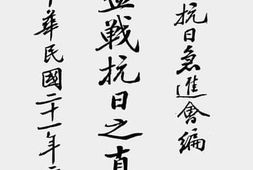 抗日急進會編
血戰抗日之真
中華民國二十一年